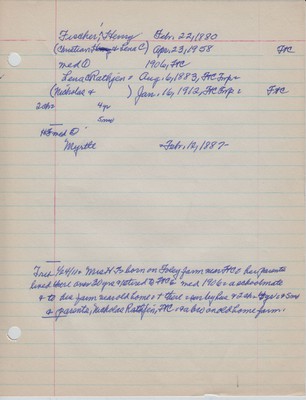 Fischer, Henry Feb. 22, 1880
(Christian & Lena C) Apr. 23, 1958 FtC
med ① 1906, FtC
Lena Rathjen = Aug. 6, 1883, FtC Twp =
(Nicholas & ) Jan. 16, 1912, FtC Twp = FtC
2 chs 4yr
5mo
HF med ②
Myrtle =Feb. 12, 1887-
Mrs H F= born on Foley farm near FtC her parents
lived there over 20 yrs & retired to FtC med 1906 = a schoolmate
& to his farm near old home & there = surv by hus & 2 chs 4yrs & 5mo
& parents, Nicholas Rathjen, FtC = a bro on old home farm.